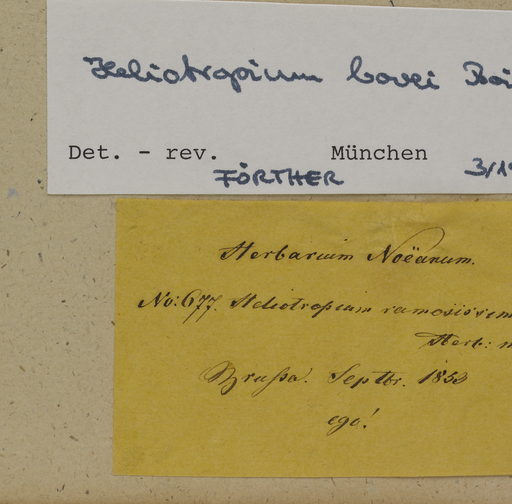 Heliotropium bovei Boi
Det. - rev. München
FÖRTHER 3/19
Herbarium Noëanum.
No: 677. Heliotropium ramosissim
Herb: n
Brussa. Septbr. 1852
ego!